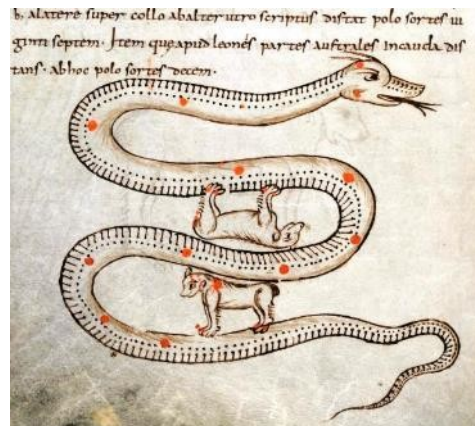 b, alatere super collo abalter utro scriptus distat polo sortes ui
ginti septem. Item que apud leones partes australes Incauda dis
tans. ab hoc polo sortes decem.